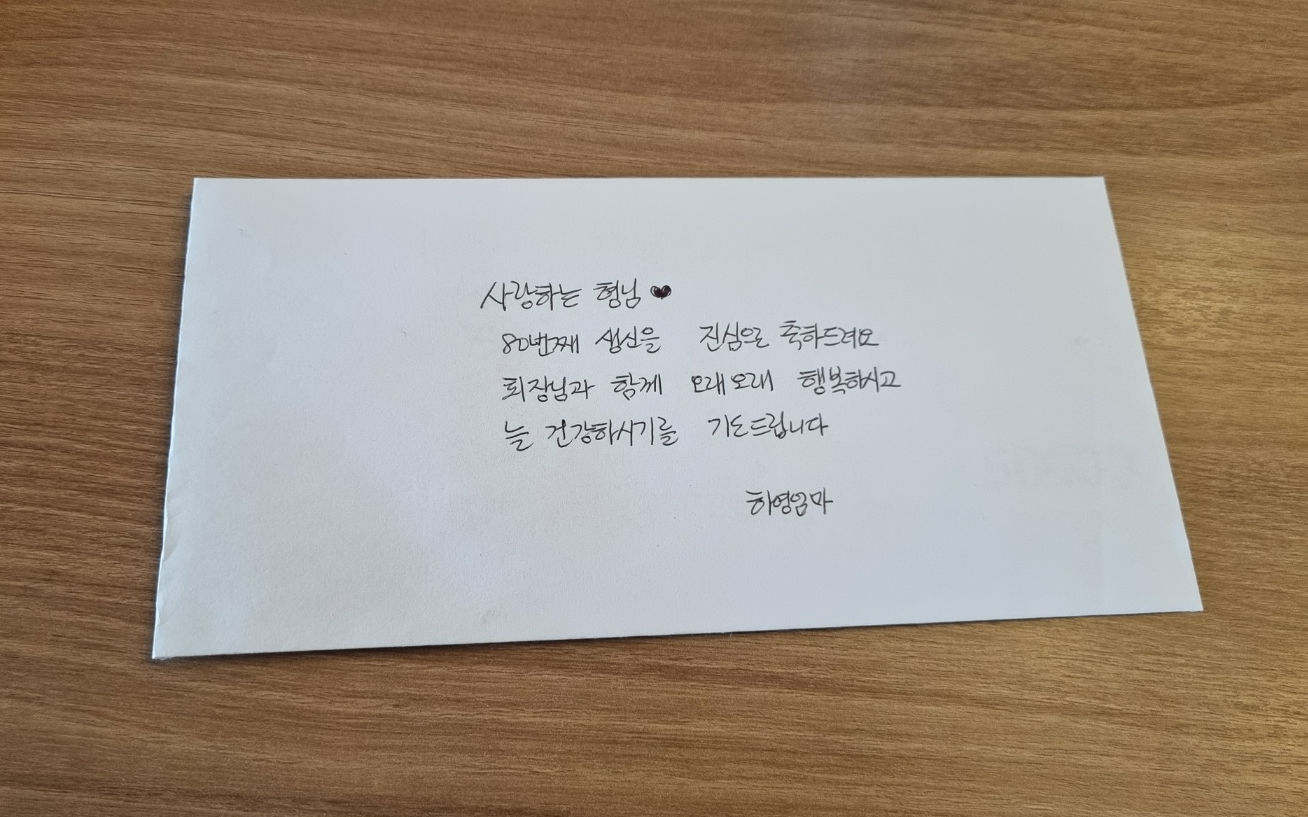 사랑하는 형님 ♥
80번째 생신을 진심으로 축하드려요
회장님과 함께 오래오래 행복하시고
늘 건강하시기를 기도드립니다
하영엄마